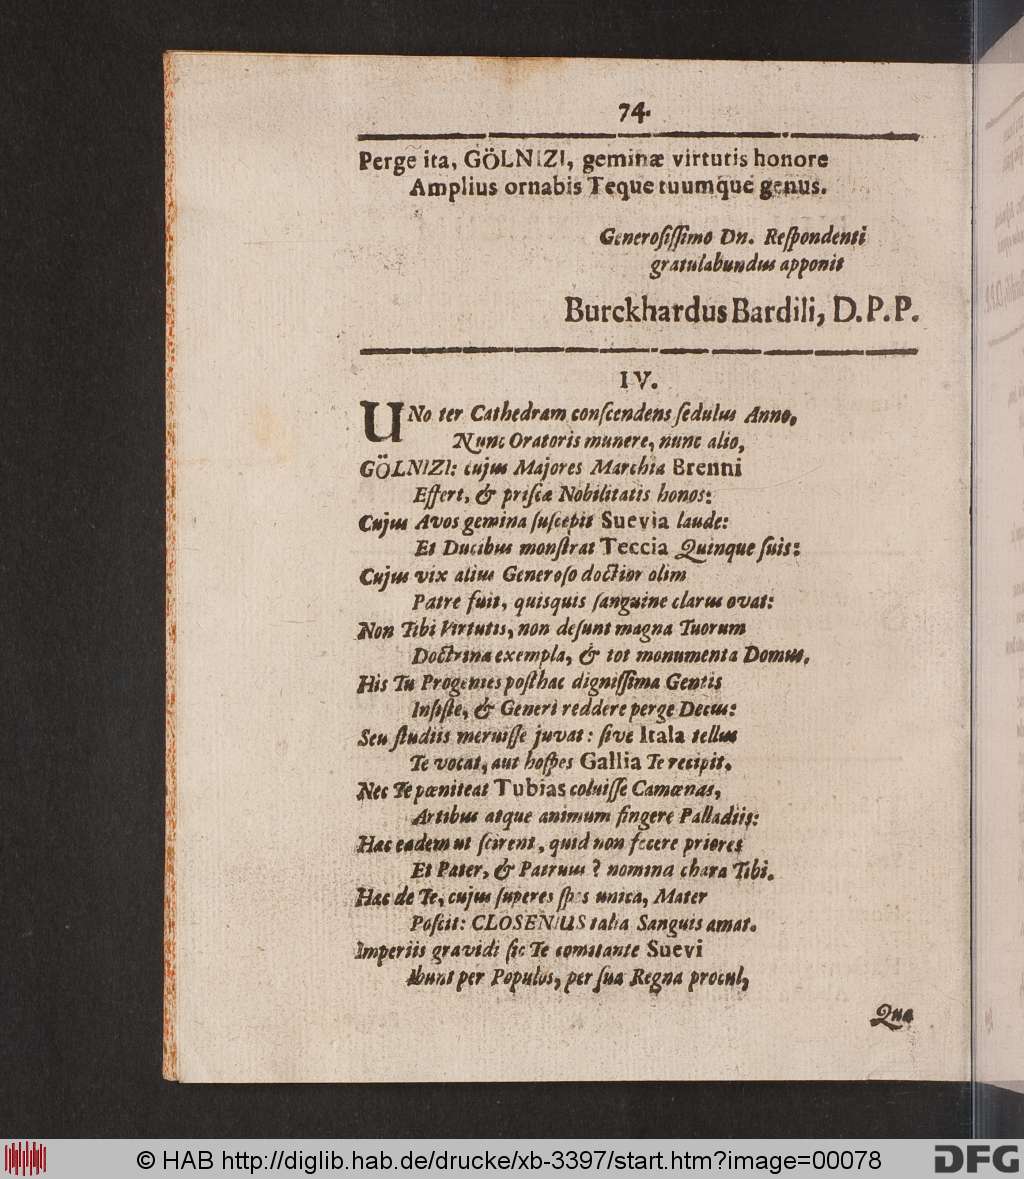 74.
Perge ita, GÖLNIZI, geminæ virtutis honore
Amplius ornabis Teque tuumque genus.
Generoſiſſimo Dn. Reſpondenti
gratulabundus apponit
Burckhardus Bardili, D.P.P.
IV.
UNo ter Cathedram conſcendens ſedulus Anno,
Nunc Oratoris munere, nunc alio,
GÖLNIZI: cujus Majores Marchia Brenni
Effert, & priſcæ Nobilitatis honos:
Cujus Avos gemina ſuſcepit Suevia laude:
Et Ducibus monſtrat Teccia Quinque ſuis:
Cujus vix alius Generoſo doctior olim
Patre fuit, quisquis ſanguine clarus ovat:
Non Tibi Virtutis, non deſunt magna Tuorum
Doctrinæ exempla, & tot monumenta Domus.
His Tu Progenies poſthac digniſſima Gentis
Inſiſte, & Generi reddere perge Decus:
Seu ſtudiis meruiſſe juvat: ſive Itala tellus
Te vocat, aut hoſpes Gallia Te recipit.
Nec Te pœniteat Tubias coluiſſe Camœnas,
Artibus atque animum fingere Palladiis:
Hac eadem ut ſcirent, quid non fecere priores
Et Pater, & Patruus? nomina chara Tibi.
Hac de Te, cujus ſuperes ſpes unica, Mater
Poſcit: CLOSENIUS talia Sanguis amat.
Imperiis gravidi ſic Te comitante Suevi
Ibunt per Populos, per ſua Regna procul,
Qua
© HAB http://diglib.hab.de/drucke/xb-3397/start.htm?image=00078
DFG